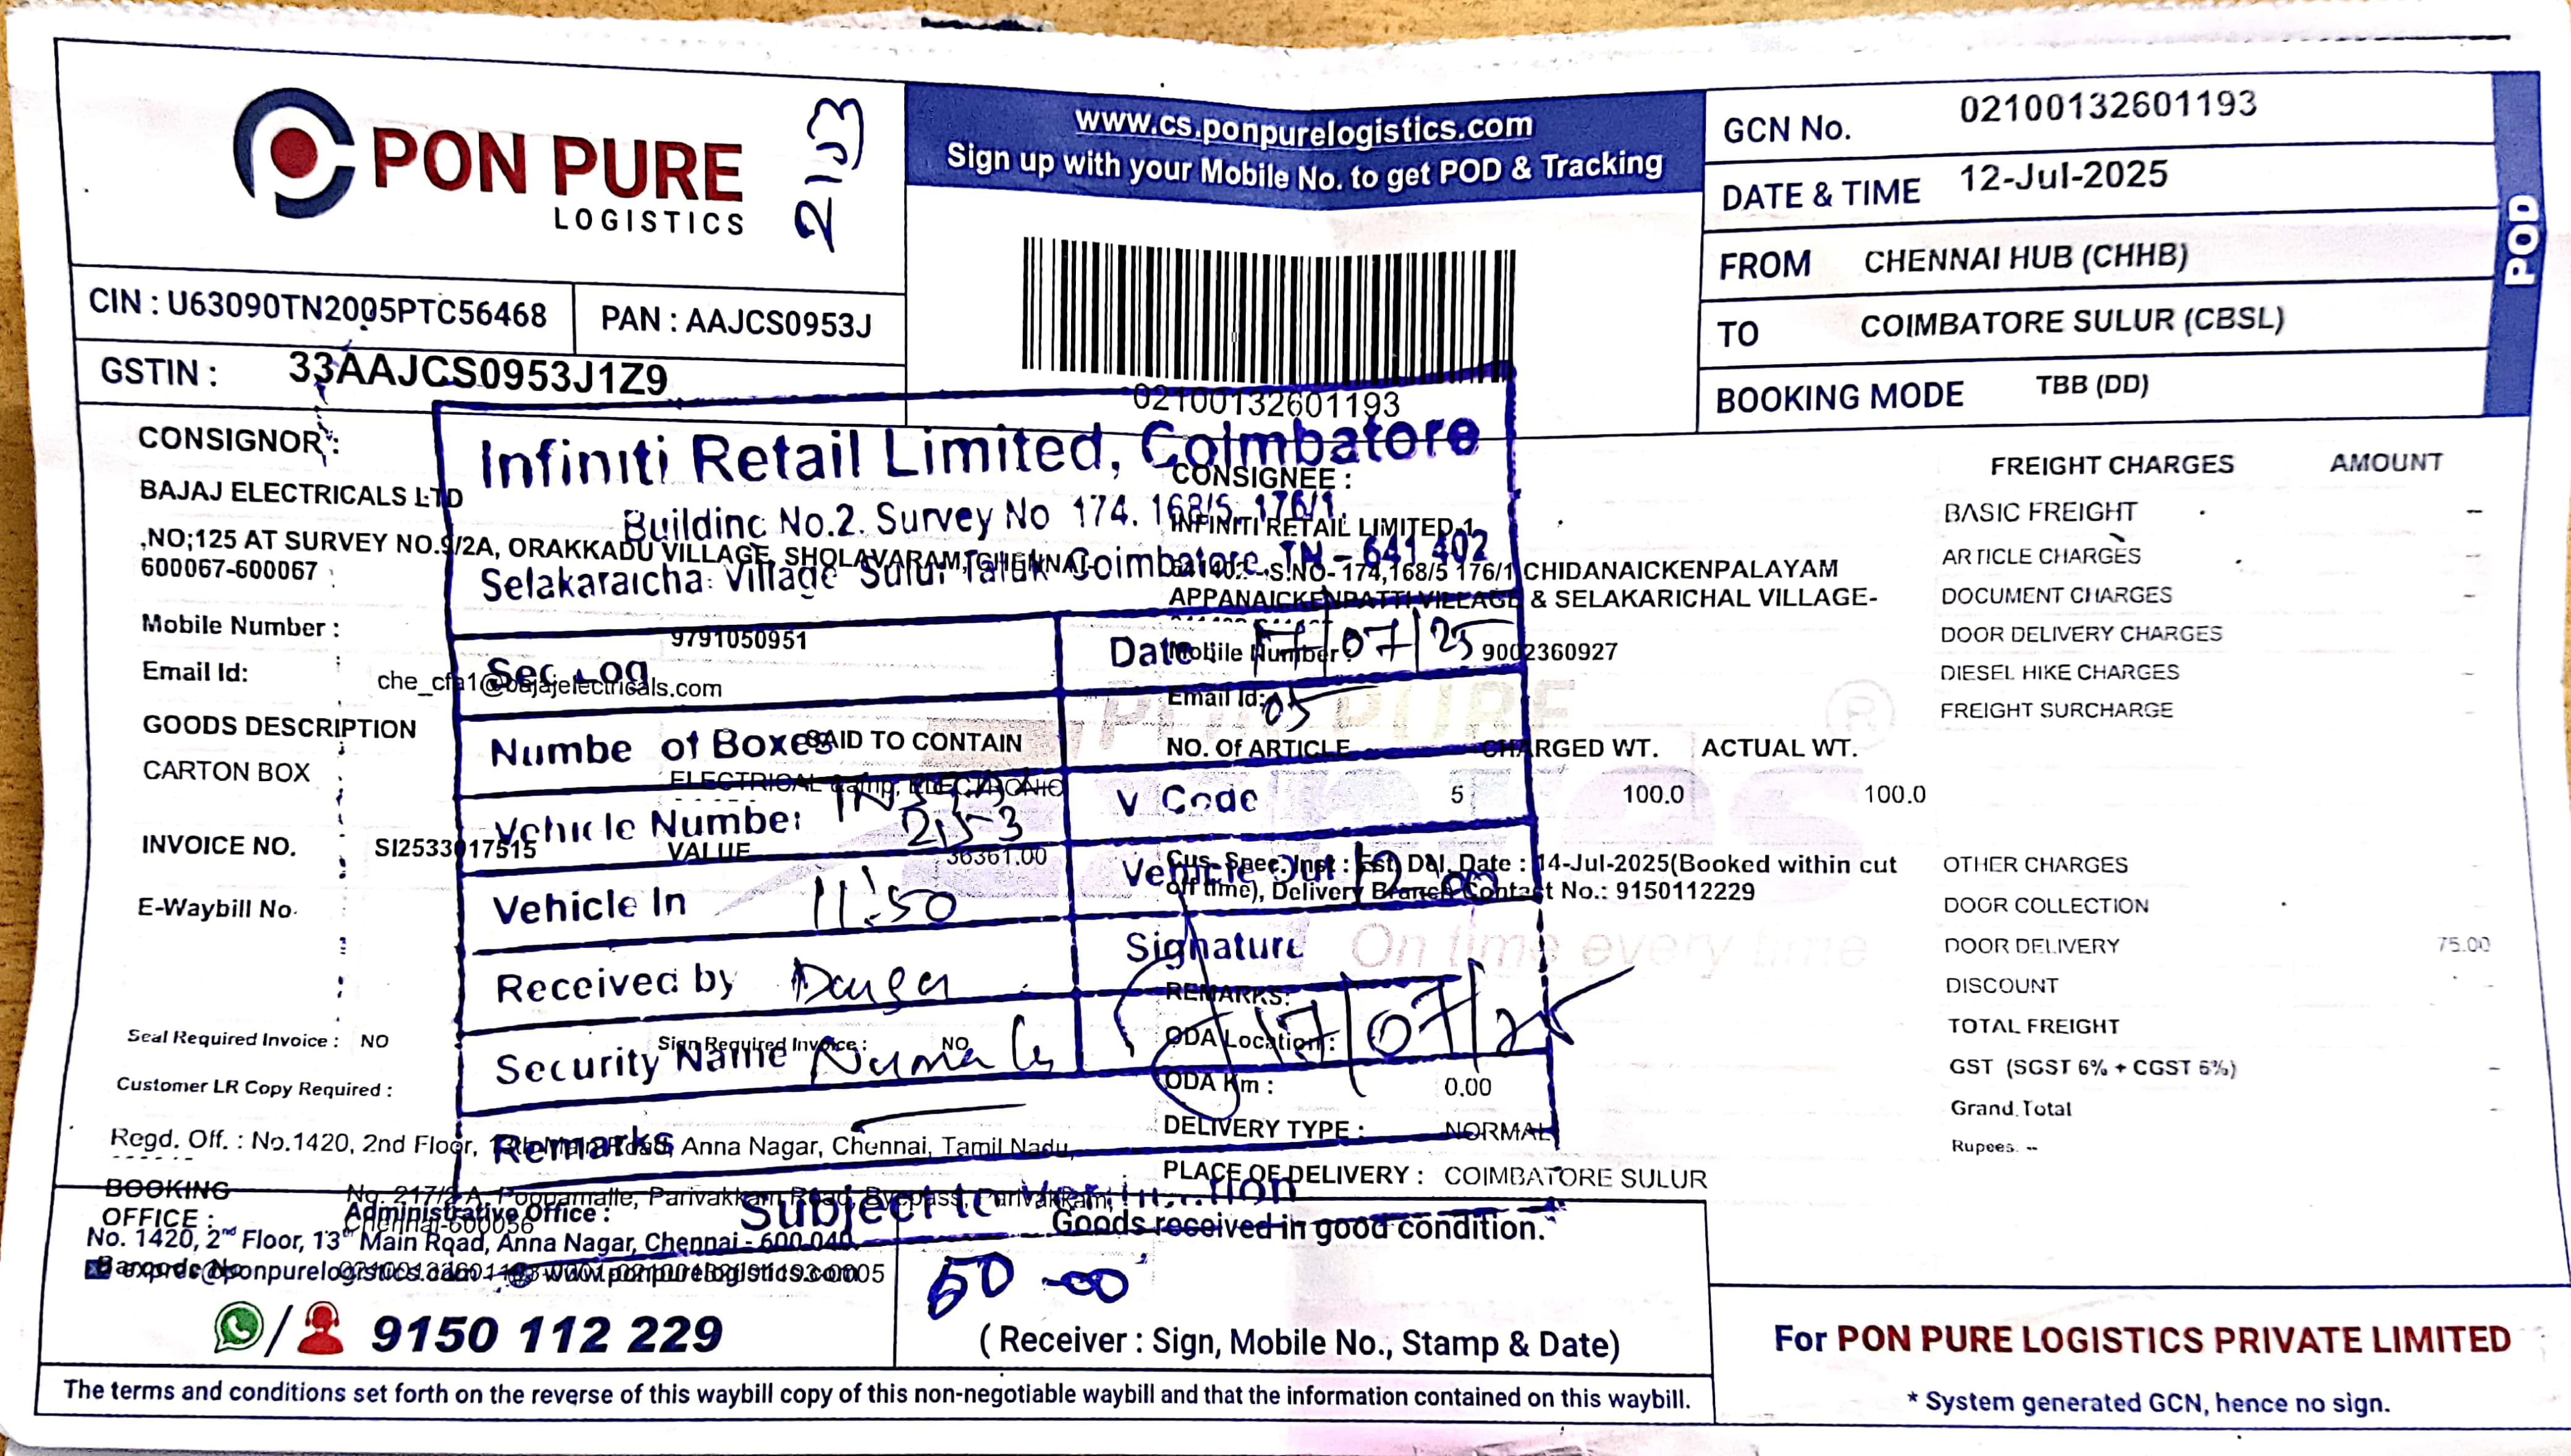 PON PURE
LOGISTICS
2153
www.cs.ponpurelogistics.com
Sign up with your Mobile No. to get POD & Tracking
GCN No. 02100132601193
DATE & TIME 12-Jul-2025
FROM CHENNAI HUB (CHHB)
TO COIMBATORE SULUR (CBSL)
BOOKING MODE TBB (DD)
POD
CIN : U63090TN2005PTC56468
PAN : AAJCS0953J
GSTIN : 33AAJCS0953J1Z9
02100132601193
CONSIGNOR :
BAJAJ ELECTRICALS LTD
,NO;125 AT SURVEY NO.9/2A, ORAKKADU VILLAGE, SHOLAVARAM, CHENNAI-
600067-600067
Mobile Number : 9791050951
Email Id: che_cfa1@bajajelectricals.com
GOODS DESCRIPTION
SAID TO CONTAIN
CARTON BOX
ELECTRICAL &amp; ELECTRONIC
INVOICE NO. SI2533017515
VALUE 36361.00
E-Waybill No.
Seal Required Invoice : NO
Sign Required Invoice : NO
Customer LR Copy Required :
CONSIGNEE :
INFINITI RETAIL LIMITED,1
641402 -,S.NO- 174,168/5 176/1 CHIDANAICKENPALAYAM
APPANAICKENPATTI VILLAGE & SELAKARICHAL VILLAGE-
Mobile Number : 9002360927
Email Id:
NO. Of ARTICLE CHARGED WT. ACTUAL WT.
5 100.0 100.0
Cus. Spec. Inst : Est. Del. Date : 14-Jul-2025(Booked within cut
off time), Delivery Branch Contact No.: 9150112229
REMARKS:
ODA Location :
ODA Km : 0.00
DELIVERY TYPE : NORMAL
PLACE OF DELIVERY : COIMBATORE SULUR
PON PURE
®
On time every time
Infiniti Retail Limited, Coimbatore
Building No.2. Survey No 174. 168/5, 176/1.
Selakaraicha Village Sulur Taluk Coimbatore, TN – 641 402
Date 17/07/25
Number of Boxes 05
Vehicle Number
2153
V Code
Vehicle In 11:50
Vehicle Out
Received by
Signature
17/07/25
Security Name
Remarks
Subject to
FREIGHT CHARGES AMOUNT
BASIC FREIGHT –
ARTICLE CHARGES –
DOCUMENT CHARGES –
DOOR DELIVERY CHARGES
DIESEL HIKE CHARGES –
FREIGHT SURCHARGE –
OTHER CHARGES –
DOOR COLLECTION
DOOR DELIVERY 75.00
DISCOUNT –
TOTAL FREIGHT
GST (SGST 6% + CGST 6%) –
Grand Total –
Rupees. --
Regd. Off. : No.1420, 2nd Floor, 13th Main Road, Anna Nagar, Chennai, Tamil Nadu,
BOOKING
OFFICE :
No. 217/2-A, Poonamalle, Parivakkam Road, Byepass, Parivakkam,
Chennai-600056
Administrative Office :
No. 1420, 2nd Floor, 13th Main Road, Anna Nagar, Chennai - 600 040.
Barcode No
www.ponpurelogistics.com
9150 112 229
Goods received in good condition.
( Receiver : Sign, Mobile No., Stamp & Date)
For PON PURE LOGISTICS PRIVATE LIMITED
* System generated GCN, hence no sign.
The terms and conditions set forth on the reverse of this waybill copy of this non-negotiable waybill and that the information contained on this waybill.